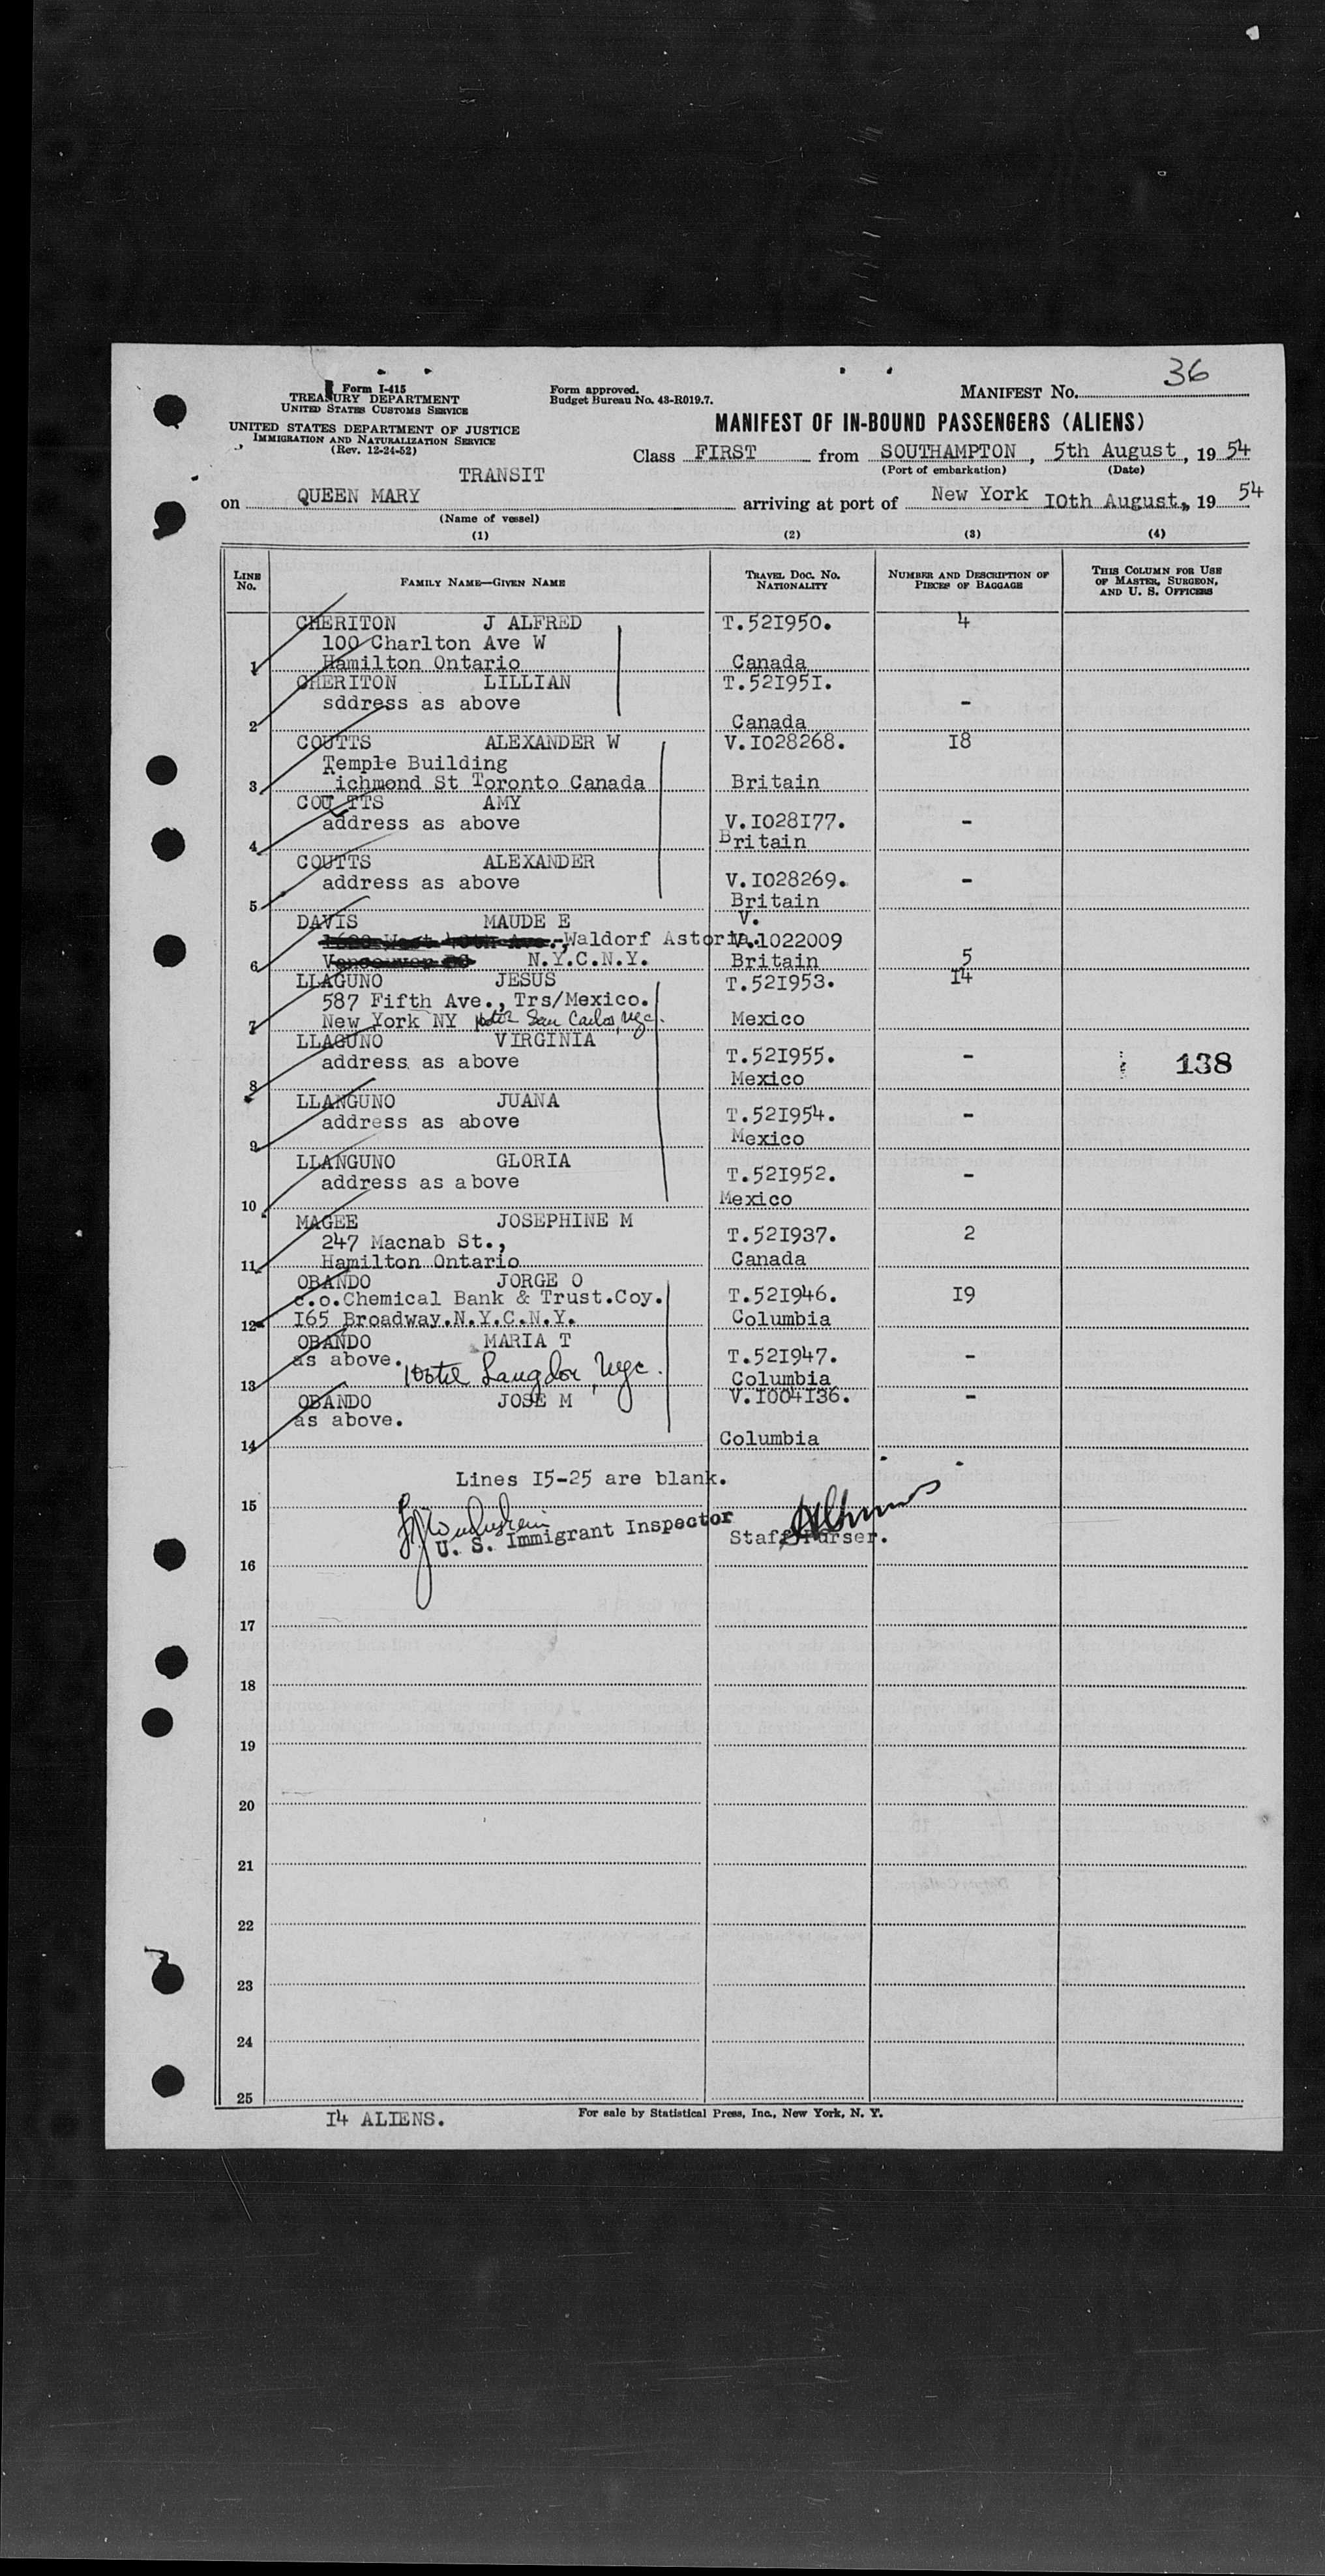 36
Form I-415
TREASURY DEPARTMENT
UNITED STATES CUSTOMS SERVICE
UNITED STATES DEPARTMENT OF JUSTICE
IMMIGRATION AND NATURALIZATION SERVICE
(Rev. 12-24-52)
Form approved.
Budget Bureau No. 43-R019.7.
MANIFEST No.
MANIFEST OF IN-BOUND PASSENGERS (ALIENS)
Class FIRST from SOUTHAMPTON, 5th August, 19 54
(Port of embarkation) (Date)
TRANSIT
on QUEEN MARY arriving at port of New York I0th August,, 19 54
(Name of vessel)
(1) (2) (3) (4)
LINE No. FAMILY NAME—GIVEN NAME TRAVEL DOC. No. NATIONALITY NUMBER AND DESCRIPTION OF PIECES OF BAGGAGE THIS COLUMN FOR USE OF MASTER, SURGEON, AND U. S. OFFICERS
CHERITON J ALFRED T.52I950. 4
100 Charlton Ave W
1 Hamilton Ontario Canada
CHERITON LILLIAN T.52I95I.
sddress as above -
2 Canada
COUTTS ALEXANDER W V.I028268. I8
Temple Building
3 ichmond St Toronto Canada Britain
COU TTS AMY
address as above V.I028I77. -
4 Britain
COUTTS ALEXANDER
address as above V.I028269. -
5 Britain
DAVIS MAUDE E V.
Waldorf Astoria. V.1022009
6 N.Y.C.N.Y. Britain 5
LLAGUNO JESUS T.52I953. I4
587 Fifth Ave., Trs/Mexico.
7 New York NY Hotel San Carlos, nyc. Mexico
LLAGUNO VIRGINIA
address as above T.52I955. - 138
8 Mexico
LLANGUNO JUANA
address as above T.52I954. -
9 Mexico
LLANGUNO GLORIA
address as above T.52I952. -
10 Mexico
MAGEE JOSEPHINE M
247 Macnab St., T.52I937. 2
11 Hamilton Ontario Canada
OBANDO JORGE O
c.o.Chemical Bank & Trust.Coy. T.52I946. I9
12 I65 Broadway.N.Y.C.N.Y. Columbia
OBANDO MARIA T
as above. T.52I947. -
13 Hotel Langdon, nyc. Columbia
OBANDO JOSE M V.I004I36. -
as above.
14 Columbia
Lines I5-25 are blank.
15
U. S. Immigrant Inspector Staff Purser.
16
17
18
19
20
21
22
23
24
25
I4 ALIENS.
For sale by Statistical Press, Inc., New York, N. Y.